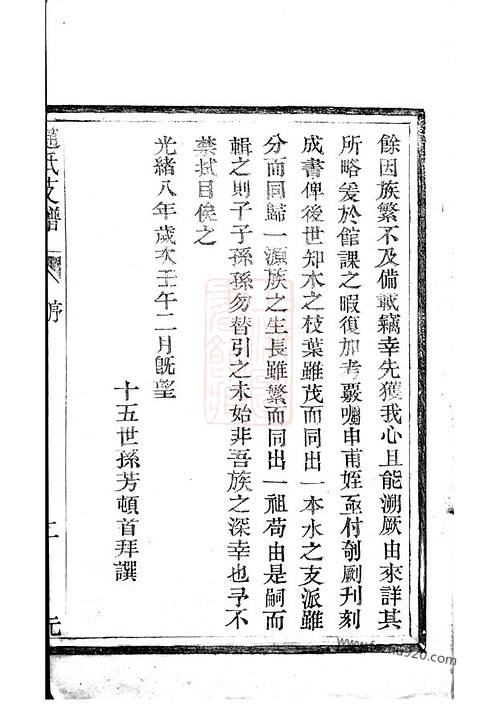 餘因族繁不及備載竊幸先獲我心且能溯厥由來詳其
所略爰於館課之暇復加考覈囑申甫姪亟付剞劂刊刻
成書俾後世知木之枝葉雖茂而同出一本水之支派雖
分而同歸一源族之生長雖繁而同出一祖苟由是嗣而
輯之則子子孫孫勿替引之未始非吾族之深幸也予不
禁拭目俟之
光緒八年歲次壬午二月旣望
十五世孫芳頓首拜譔
趙氏支譜
序
二
元